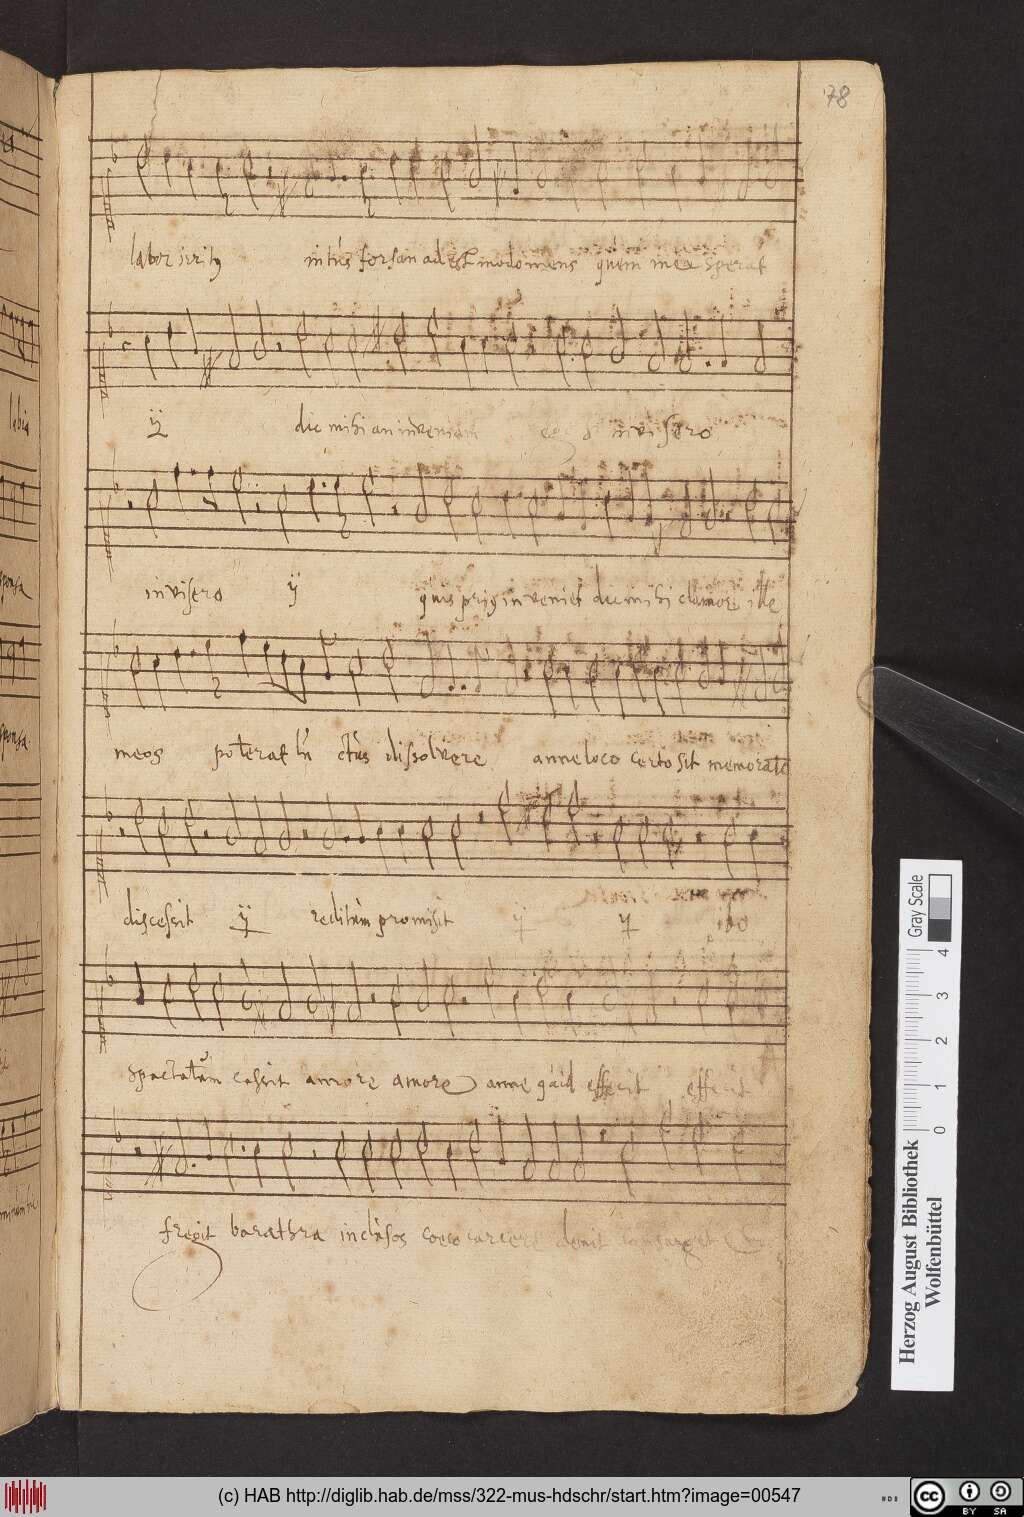 78
labor irritꝰ intus forsan adest modo mens quem mea sperat
ij dic mihi an inveniam ego si inviséro
invisero ij quis priꝰ inveniet dic mihi clamor ille
meos poterat luctus dissolvere anne loco certo sit memorate
discessit ij reditum promisit ij ij ibo
spectatum cessit amore amore anne quid efferit efferit
fregit barathra inclusos coeco carcere demit
labia
sponsa
sponsa
Gray Scale
0 1 2 3 4
Herzog August Bibliothek
Wolfenbüttel
(c) HAB http://diglib.hab.de/mss/322-mus-hdschr/start.htm?image=00547
cc BY SA